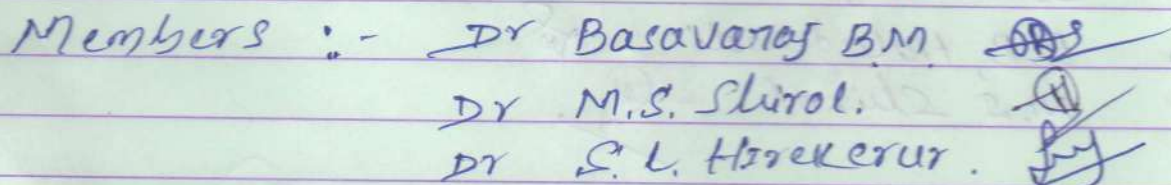 Members :- Dr Basavaraj B.M.
Dr M.S. Shirol.
Dr S.L. Hirekerur.